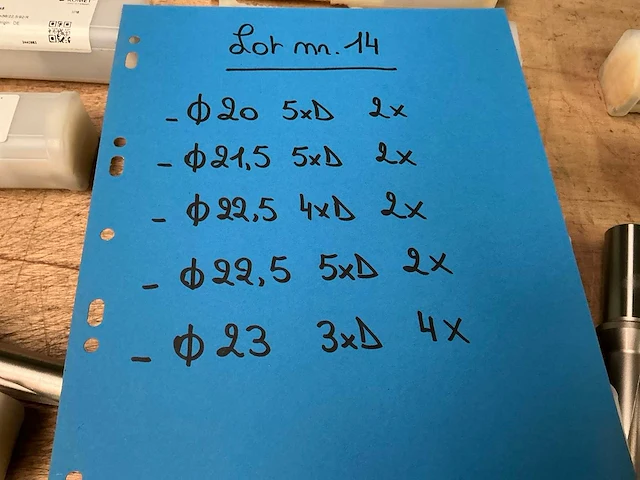 Lot nr. 14
- Φ 20 5xD 2x
- Φ 21,5 5xD 2x
- Φ 22,5 4xD 2x
- Φ 22,5 5xD 2x
- Φ 23 3xD 4x